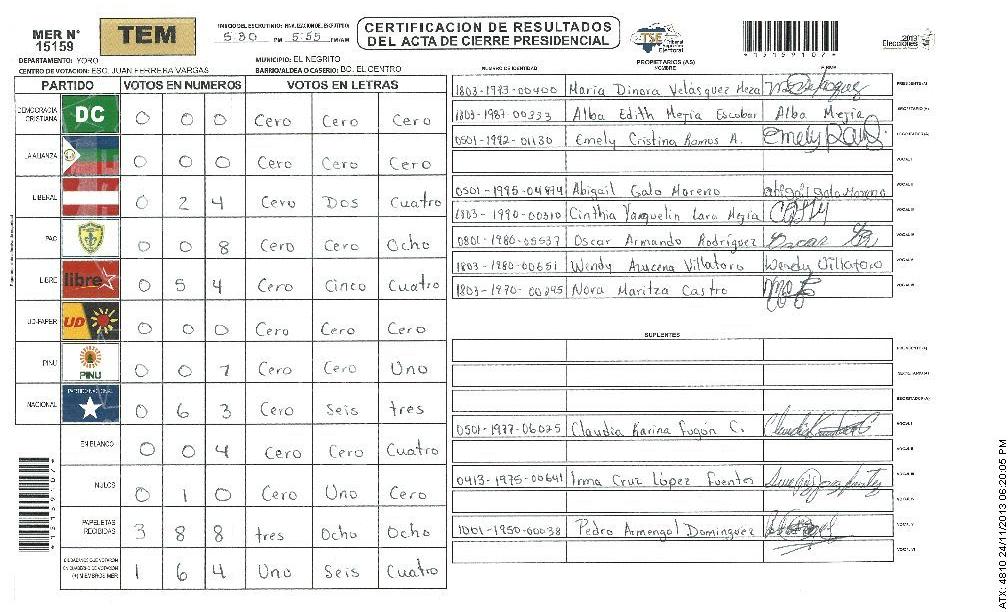 MER N° 15159
TEM
5:30 PM 5:55 PM/AM
CERTIFICACION DE RESULTADOS
DEL ACTA DE CIERRE PRESIDENCIAL
TSE Tribunal Supremo Electoral
*15159107*
2013 Elecciones
DEPARTAMENTO: YORO
MUNICIPIO: EL NEGRITO
CENTRO DE VOTACION: ESC. JUAN FERRERA VARGAS
BARRIO/ALDEA O CASERIO: BO. EL CENTRO
PARTIDO VOTOS EN NUMEROS VOTOS EN LETRAS
DEMOCRACIA CRISTIANA DC 0 0 0 Cero Cero Cero
LA ALIANZA 0 0 0 Cero Cero Cero
LIBERAL 0 2 4 Cero Dos Cuatro
PAC 0 0 8 Cero Cero Ocho
LIBRE libre 0 5 4 Cero Cinco Cuatro
UD-FAPER UD 0 0 0 Cero Cero Cero
PINU PINU 0 0 1 Cero Cero Uno
NACIONAL PARTIDO NACIONAL 0 6 3 Cero Seis tres
EN BLANCO 0 0 4 Cero Cero Cuatro
NULOS 0 1 0 Cero Uno Cero
PAPELETAS RECIBIDAS 3 8 8 tres Ocho Ocho
(+) MIEMBROS MER 1 6 4 Uno Seis Cuatro
PROPIETARIOS (AS)
NUMERO DE IDENTIDAD NOMBRE FIRMA
1803-1973-00400 Maria Dinora Velásquez Meza PRESIDENTE(A)
1803-1987-00333 Alba Edith Mejia Escobar Alba Mejia SECRETARIO(A)
0501-1992-01130 Emely Cristina Ramos A. ESCRUTADOR(A)
VOCAL I
0501-1985-04874 Abigail Galo Moreno Abigail Galo Moreno VOCAL II
1803-1990-00310 Cinthia Yaquelin Lara Mejia VOCAL III
0801-1980-05537 Oscar Armando Rodríguez VOCAL IV
1803-1980-00651 Wendy Azucena Villatoro Wendy Villatoro VOCAL V
1803-1970-00295 Nora Maritza Castro VOCAL VI
SUPLENTES
PRESIDENTE(A)
SECRETARIO(A)
ESCRUTADOR(A)
0501-1977-06025 Claudia Karina Fugón C. VOCAL I
VOCAL II
0413-1975-00641 Irma Cruz López Fuentes VOCAL III
VOCAL IV
1001-1950-00038 Pedro Armengol Dominguez VOCAL V
VOCAL VI
*15159107*
ATX: 4810 24/11/2013 06:20:05 PM